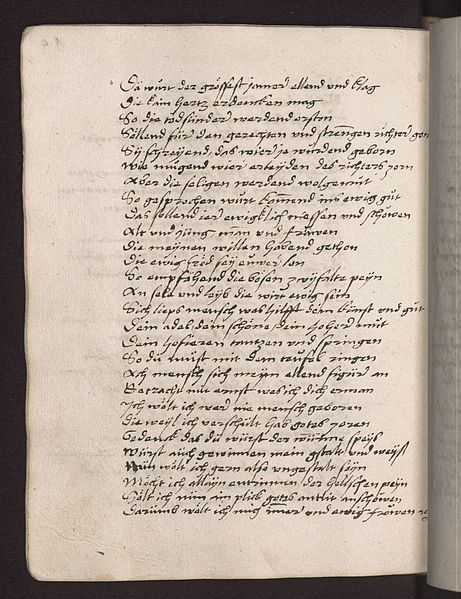 Da wurt der grössest jamer ellend und klag
Die kain hertz erdencken mag
So die todsünder werdend erston
Söllend für den gerechten und strengen richter gon
Sij schreyend, das wier je wurdend geborn
Wie mügend wier erleyden des richters zorn
Aber die seligen werdend wolgemüt
So gesprochen wurt kommend ins ewig gut
Das sollend ier ewigklich niessen und schöwen
Alt und Jüng man und früwen
Die meynen willen habend gethon
Die ewig fröd sey euwer lon
So empfahend die bösen zwyfalte peyn
An sele und lyb die wirt ewig sein
Sich lieps mensch was hilfft dein kunst und gut
Dein adel dein schöne dein hoher mut
Dein hofieren tantzen und springen
So du must mit dem teufel ringen
Ach mensch sich meyn ellend figur an
Betracht mit ernst was ich dich erman
Ich wölt ich wer nie mensch geboren
die weyl ich verschült hab gotes zoren
Gedenck das du würst der würme speyß
Würst auch gewinnen mein gstalt und weyß
wölt ich gern also ungestalt seyn
Möcht ich alleyn entrinnen der hellschen peyn
Sölt ich nun ain plick gotes antlit anschöwen
Darumb wölt ich mich imer und ewig fröwen